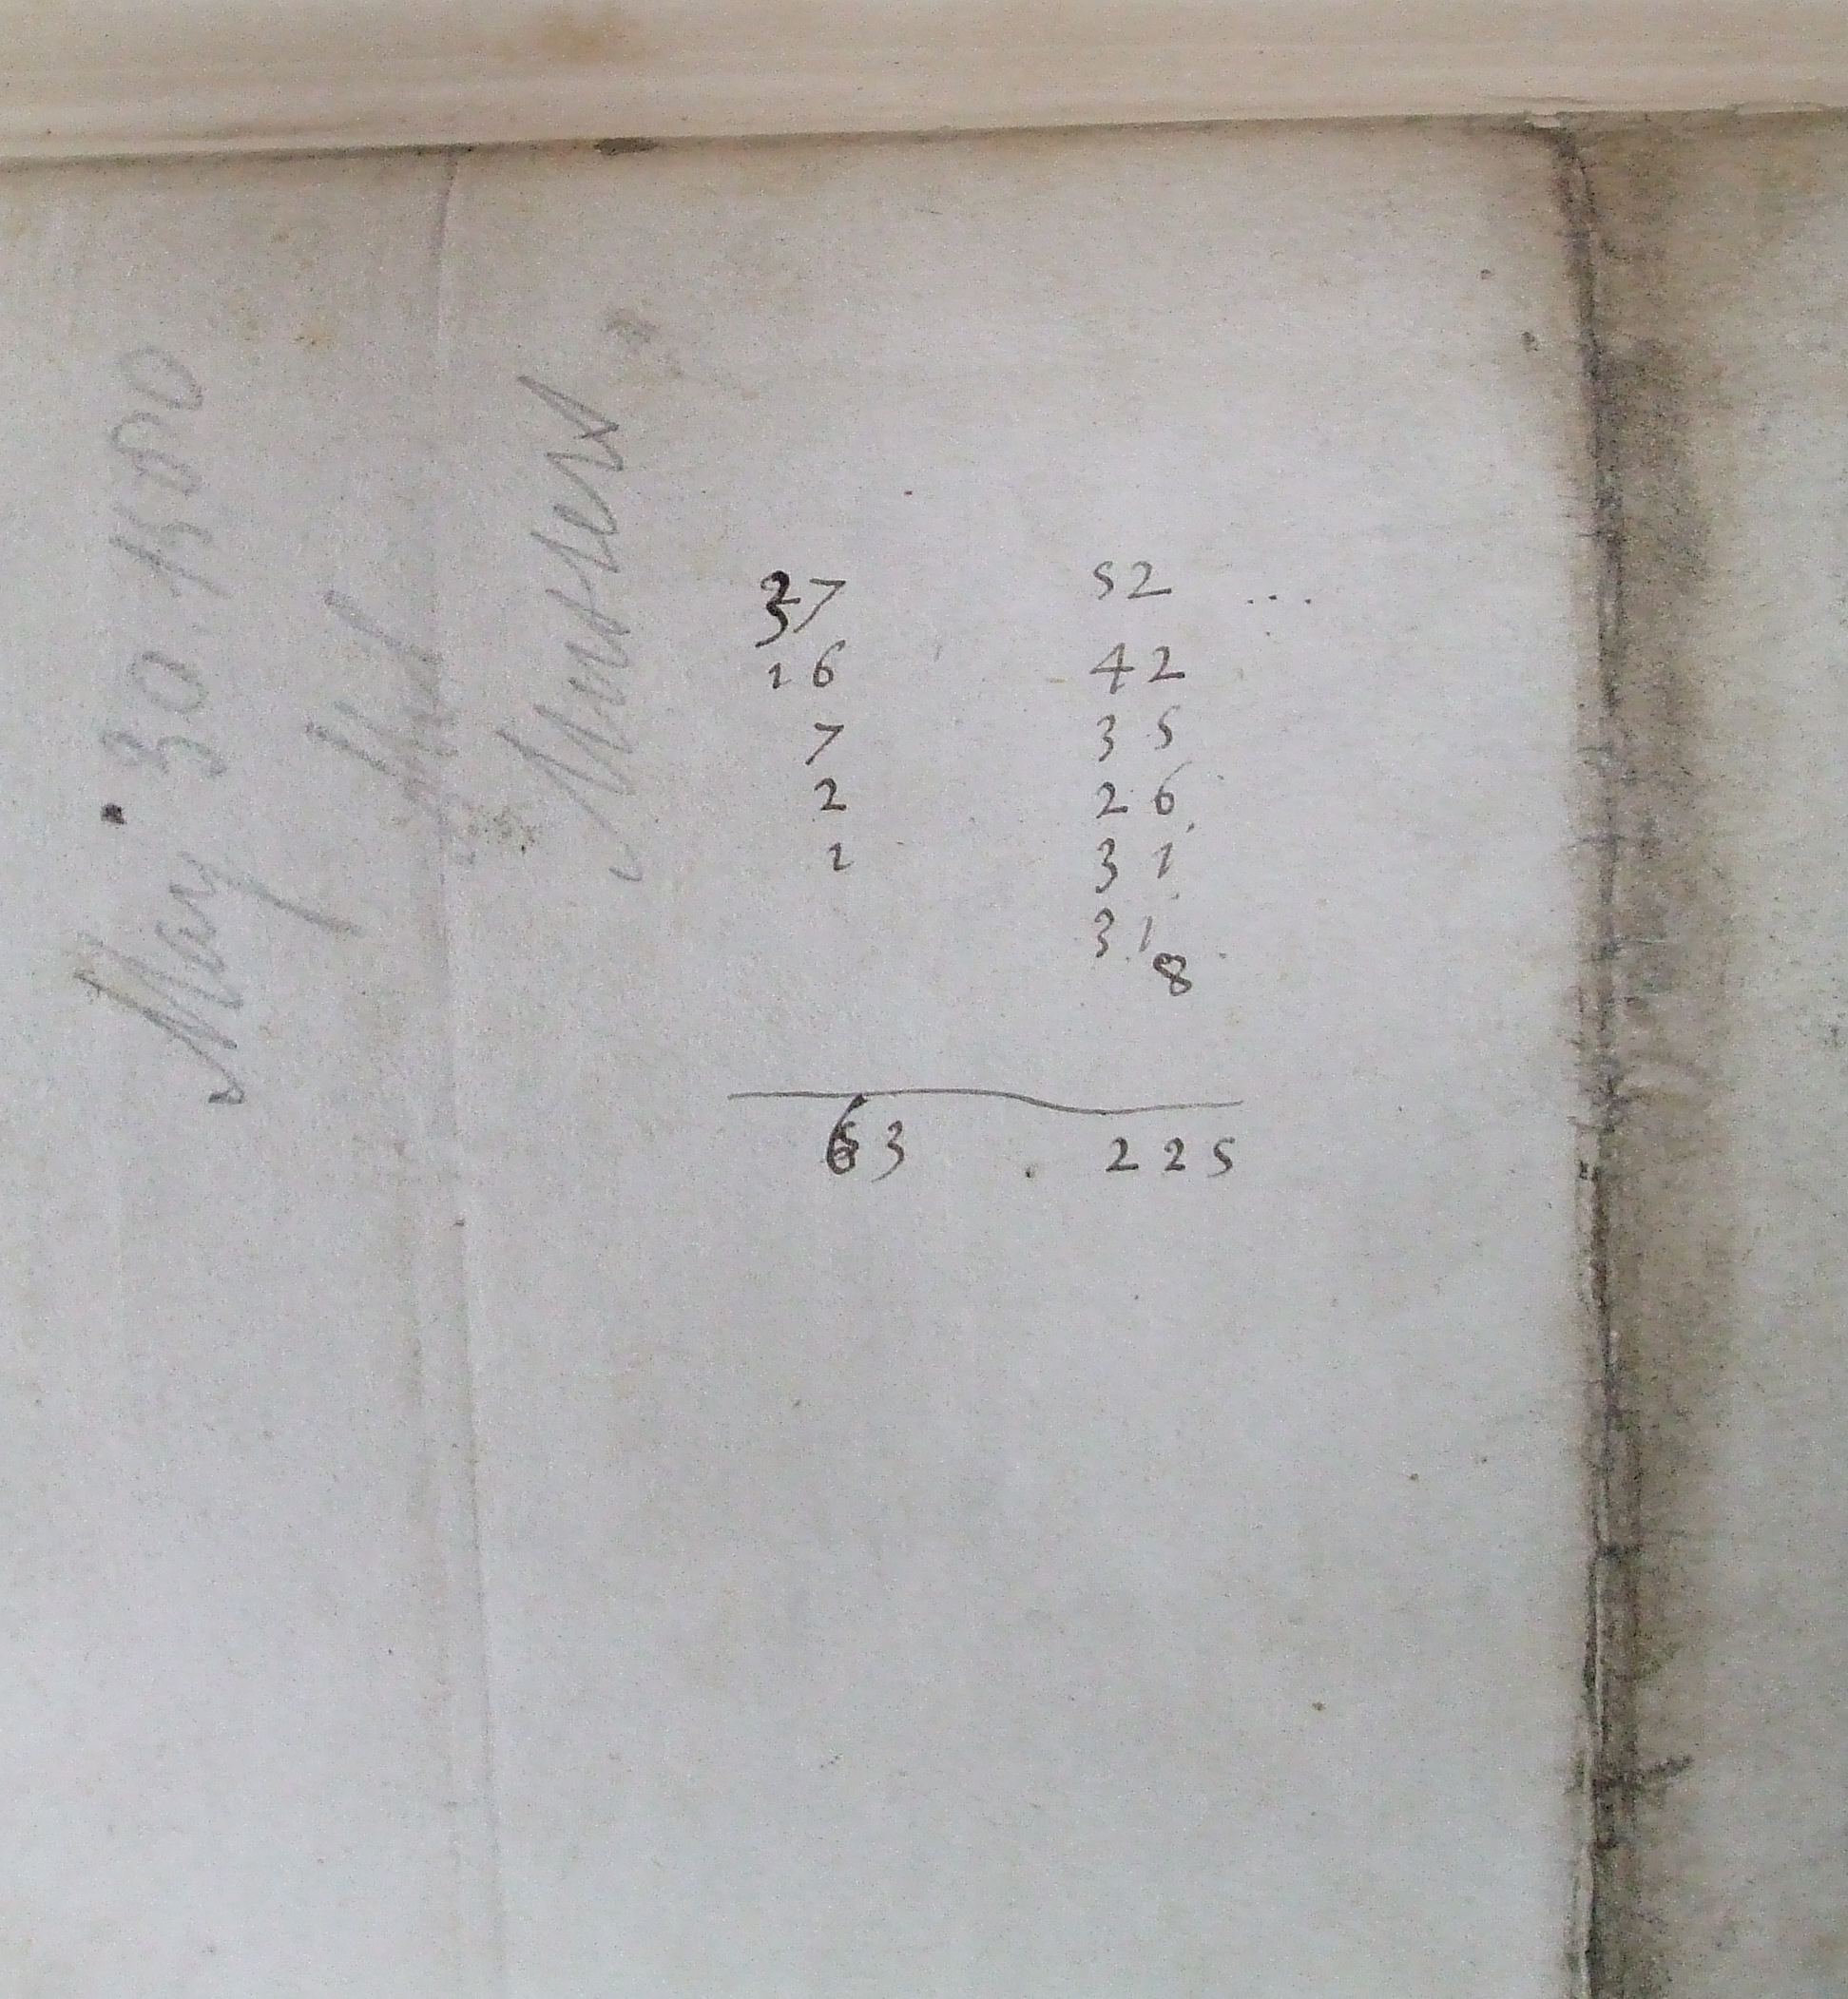 May 30. 1880
37 52 ...
16 42
7 35
2 26
1 31
31
8
63 . 225